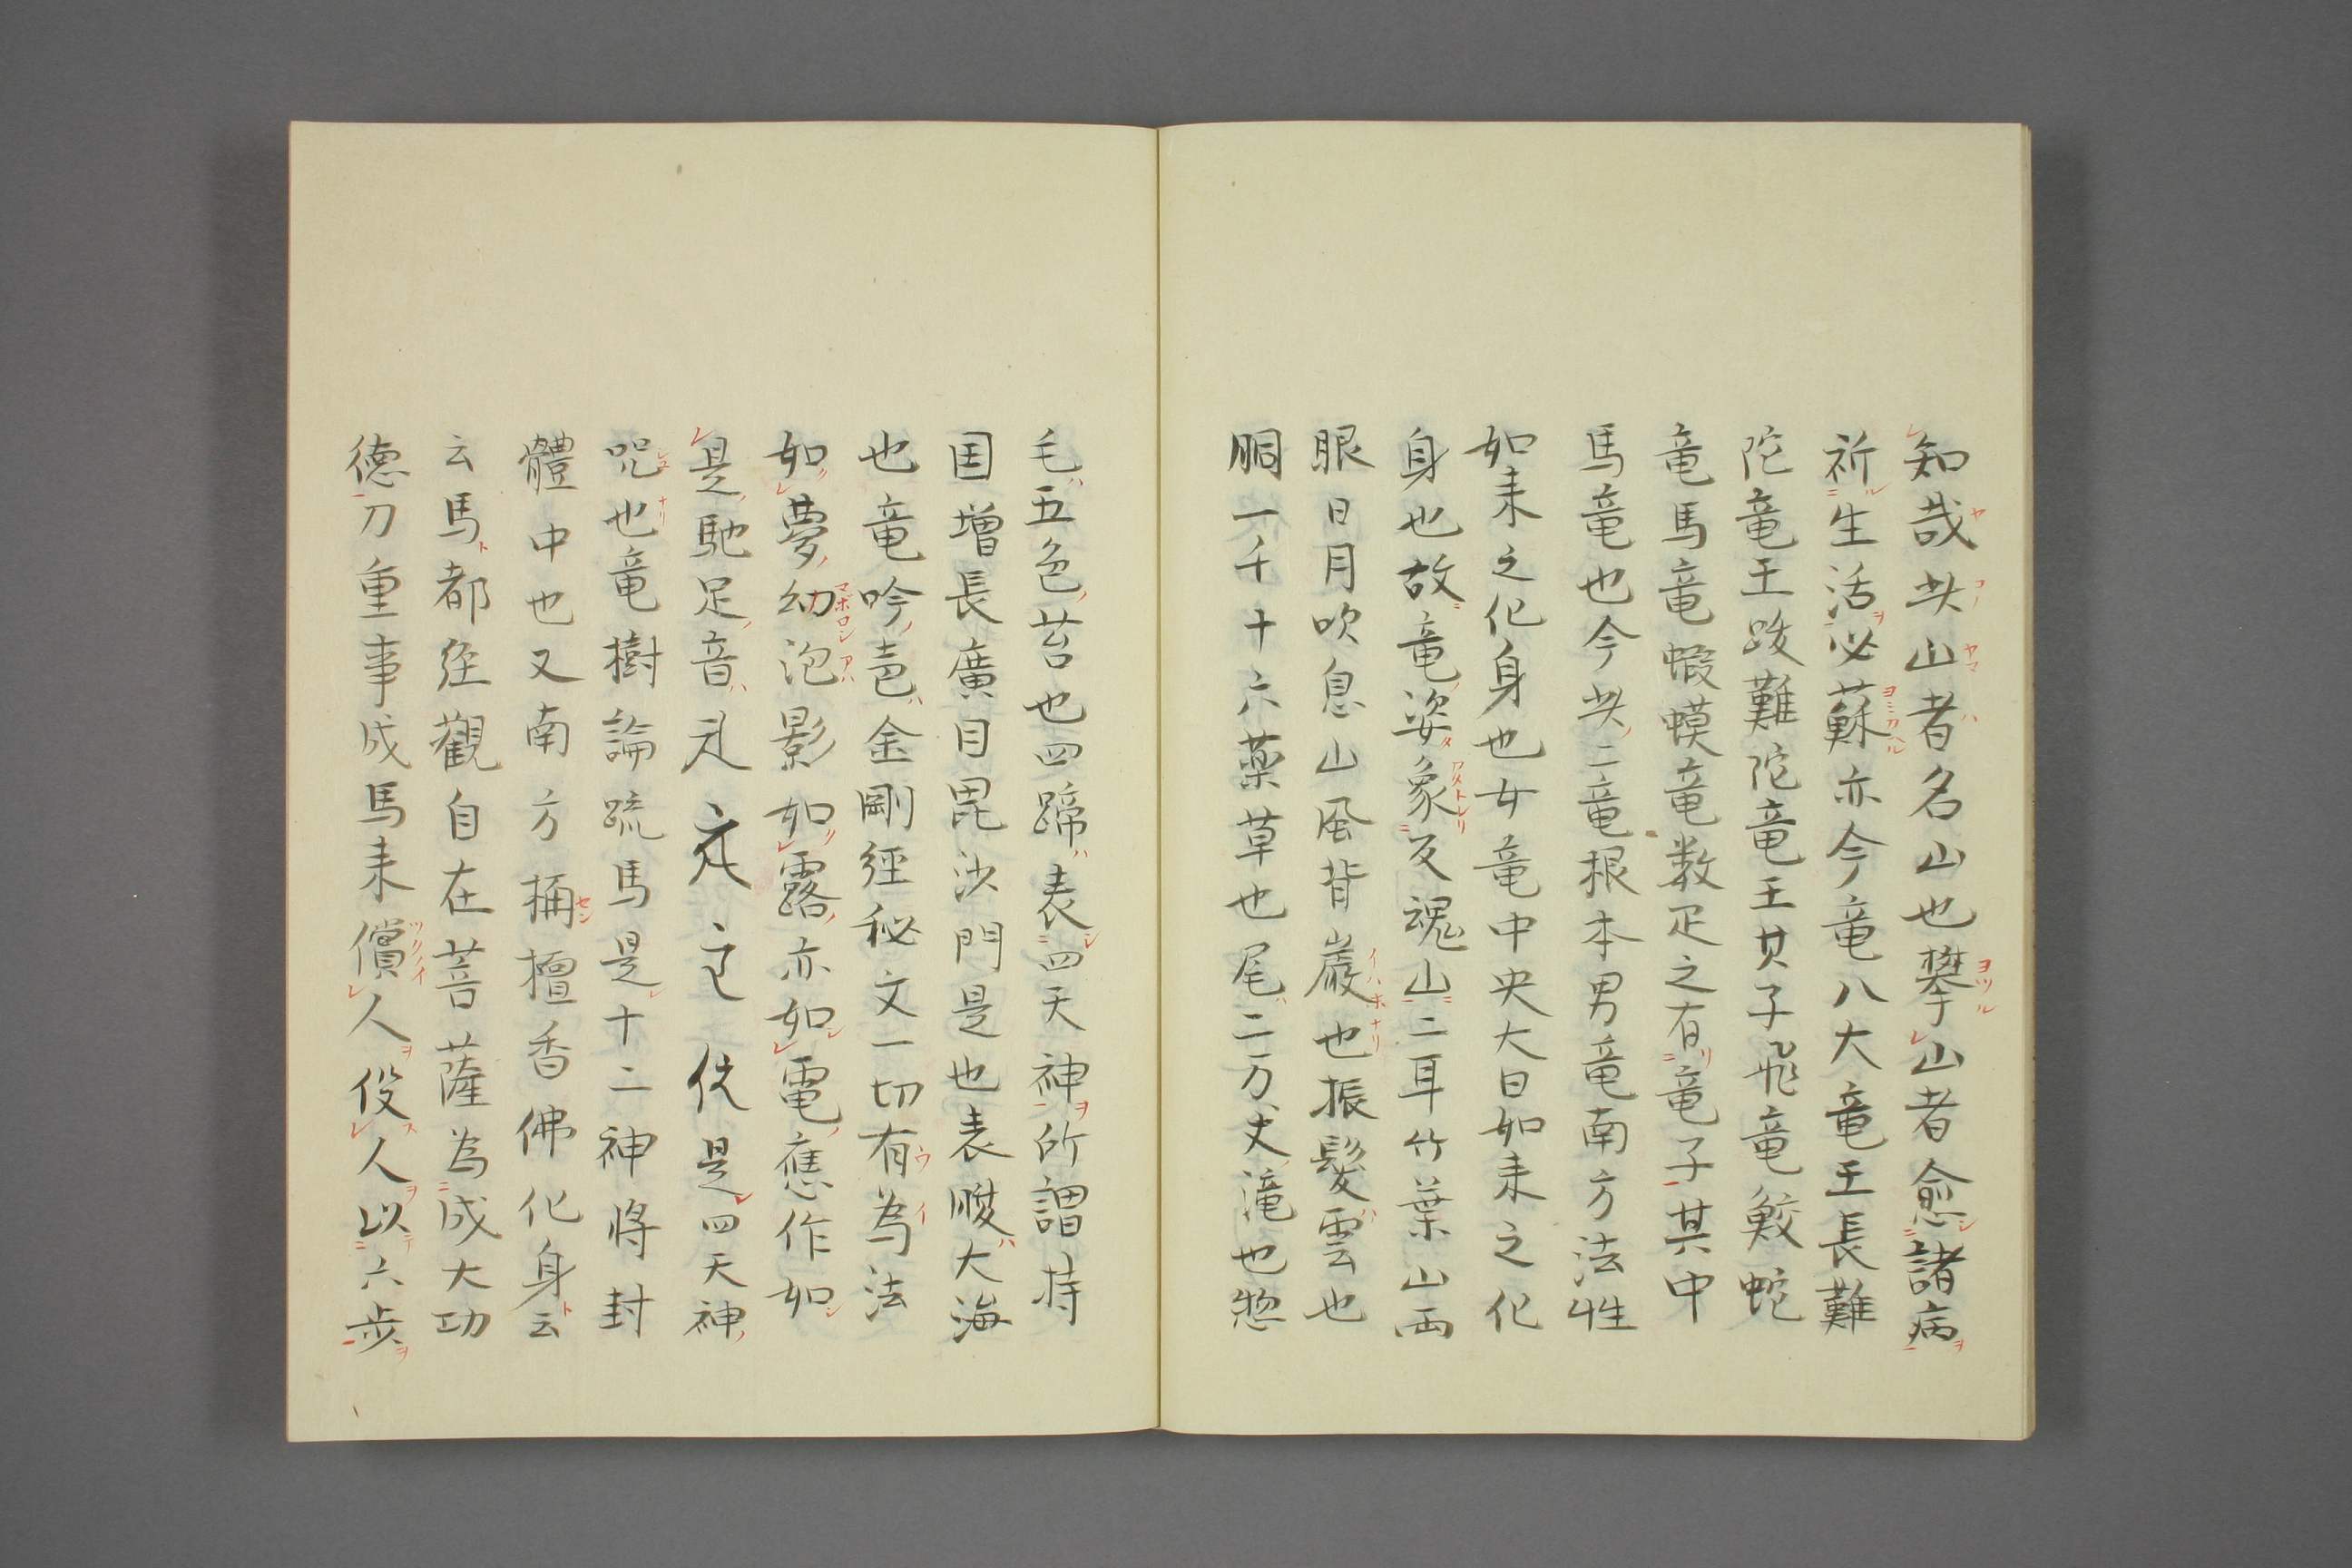 知哉此山者名山也攀山者愈諸病
祈生活必蘇亦今竜八大竜王長難
陀竜王跋難陀竜王其子飛竜鮫蛇
竜馬竜蝦蟆竜数疋之有竜子其中
馬竜也今此二竜根本男竜南方法性
如来之化身也女竜中央大日如来之化
身也故竜姿象反魂山二耳竹葉山両
眼日月吹息山風背巌也振髪雲也
胴一千十六薬草也尾二万丈滝也惣
毛五色苔也四蹄表四天神所謂持
国増長廣目毘沙門是也表腹大海
也竜吟声金剛経秘文一切有為法
如夢幼泡影如露亦如電應作如
是馳足音是四天神
呪也竜樹論疏馬是十二神将封
體中也又南方栴檀香佛化身云
云馬都経観自在菩薩為成大功
徳刀重事成馬来償人役人以六歩